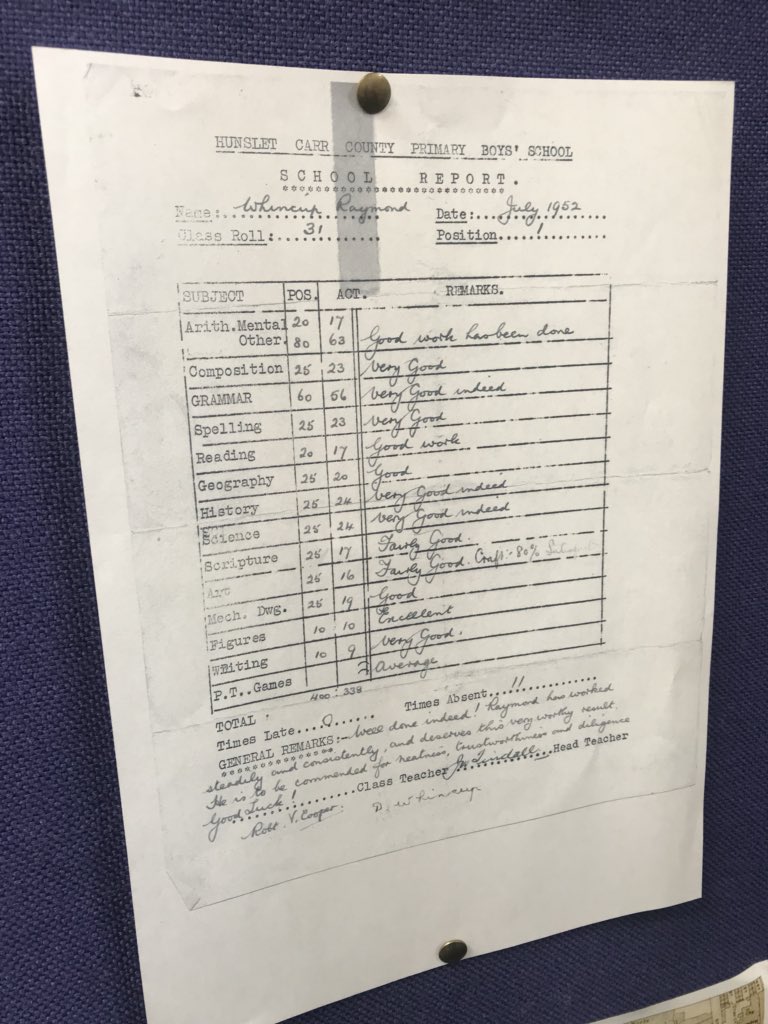 HUNSLET CARR COUNTY PRIMARY BOYS' SCHOOL
SCHOOL REPORT.
Name:. Whincup Raymond Date:....July 1952
Class Roll:....31 Position......1
SUBJECT POS. ACT. REMARKS.
Arith.Mental 20 17
Other. 80 63 Good work has been done
Composition 25 23 Very Good
GRAMMAR 60 56 Very Good indeed
Spelling 25 23 Very Good
Reading 20 17 Good work
Geography 25 20 Good
History 25 24 Very Good indeed
Science 25 24 Very Good indeed
Scripture 25 17 Fairly Good.
Art 25 16 Fairly Good. Craft:- 80%
Mech. Dwg. 25 19 Good
Figures 10 10 Excellent
Writing 10 9 Very Good.
P.T..Games Average
TOTAL 400 : 338
Times Late....0...... Times Absent...11
GENERAL REMARKS:- Well done indeed! Raymond has worked
steadily and consistently, and deserves this very worthy result.
He is to be commended for neatness, trustworthiness and diligence
Good Luck! Class Teacher J. Tindall Head Teacher
Robt. V. Cooper. D. Whincup